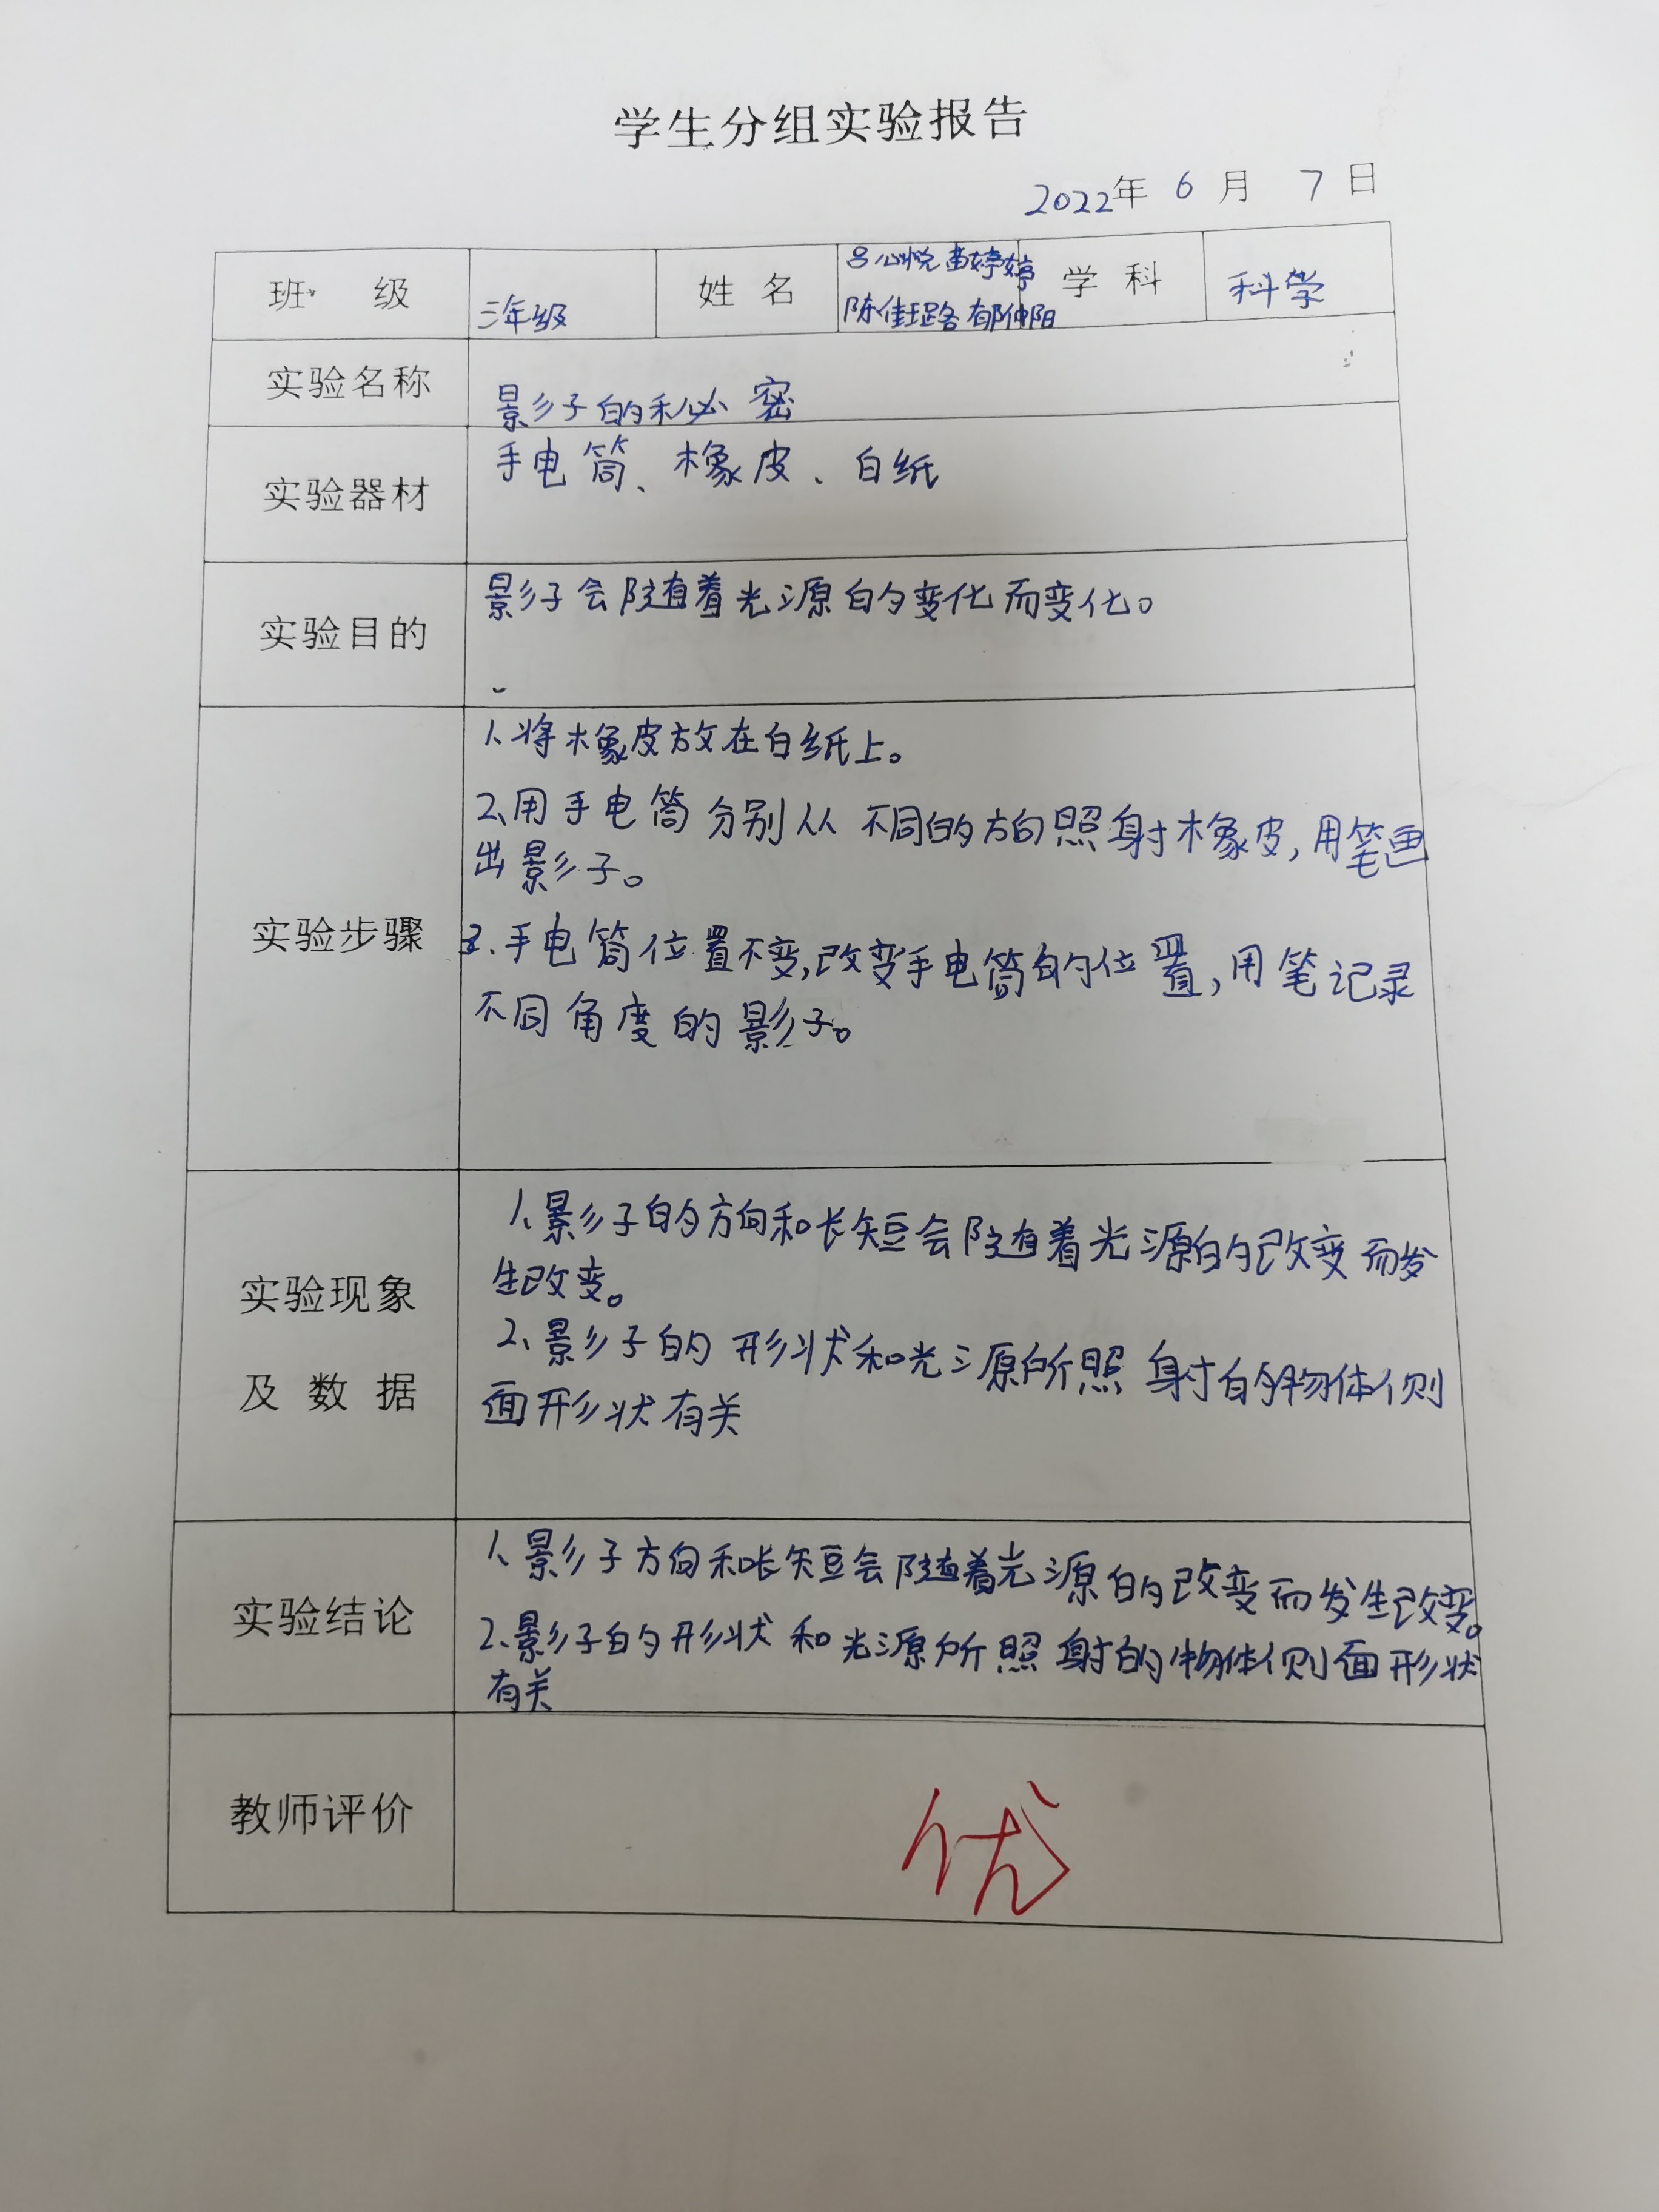 学生分组实验报告
2022年 6 月 7 日
班 级 三年级 姓 名 吕心悦 苗婷婷 学 科 科学
陈佳路 郁仲阳
实验名称 影子的秘密
实验器材 手电筒、橡皮、白纸
实验目的 影子会随着光源的变化而变化。
1、将橡皮放在白纸上。
2、用手电筒分别从不同的方向照射橡皮,用笔画
出影子。
实验步骤 3、手电筒位置不变,改变手电筒的位置,用笔记录
不同角度的影子。
1、影子的方向和长短会随着光源的改变而发
实验现象 生改变。
2、影子的形状和光源所照射的物体侧
及 数 据 面形状有关
1、影子方向和长短会随着光源的改变而发生改变。
实验结论 2、影子的形状和光源所照射的物体侧面形状
有关
教师评价 优